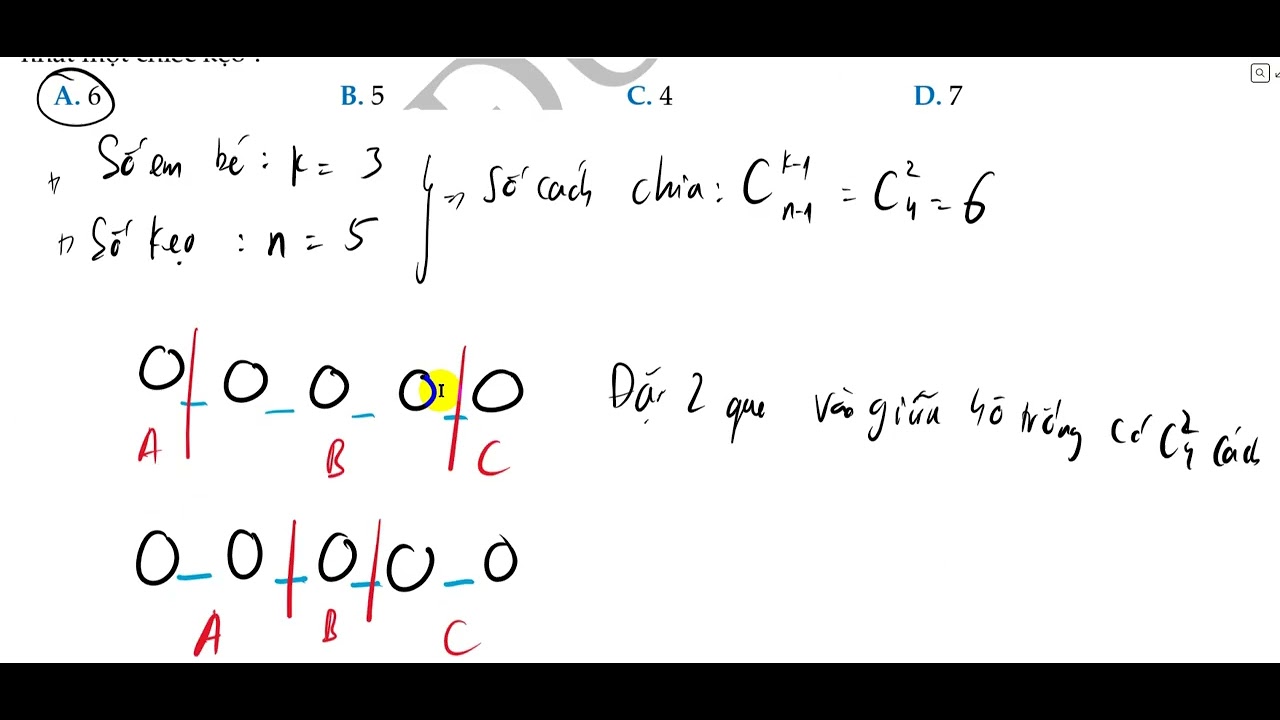 A. 6 B. 5 C. 4 D. 7
+) Số em bé : k = 3
+) Số kẹo : n = 5
} => Số cách chia : C_{n-1}^{k-1} = C_4^2 = 6
A B C
Đặt 2 que vào giữa 4 ô trống có C_4^2 cách
A B C